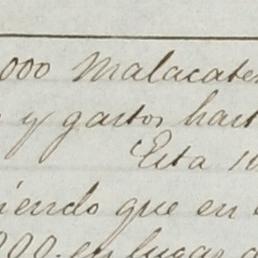 000 Malacates
y gastos hast
Esta 10
iendo que en
200. en lugar d